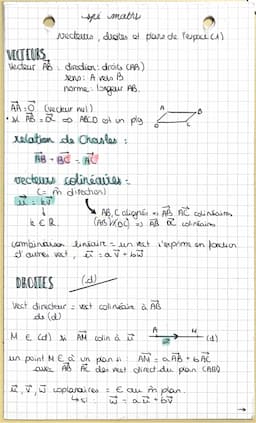 spé maths
vecteurs, droites et plans de l'espace (1)
VECTEURS
vecteur AB⃗ : direction: droite (AB)
sens: A vers B
norme: longueur AB.
AA⃗ = 0⃗ (vecteur nul)
• si AB⃗ = DC⃗ ⇒ ABCD est un plg
A B
D C
relation de Chasles :
AB⃗ + BC⃗ = AC⃗
vecteurs colinéaires :
(= m̂ direction)
u⃗ = kv⃗
k ∈ R.
A, B, C alignés ⇒ AB⃗ AC⃗ colinéaires
(AB)∥(DC) ⇒ AB⃗ DC⃗ colinéaires
combinaison linéaire = un vect s'exprime en fonction
d'autres vect, u⃗ = av⃗ + bw⃗
DROITES (d)
Vect directeur = vect colinéaire à AB⃗
de (d)
M ∈ (d) si AM⃗ colin à u⃗
A M (d)
u⃗
un point M ∈ à un plan si AM⃗ = aAB⃗ + bAC⃗
avec AB⃗ AC⃗ des vect direct du plan (ABC)
u⃗, v⃗, w⃗ coplanaires = ∈ au m̂ plan.
↳ si : w⃗ = au⃗ + bv⃗
→